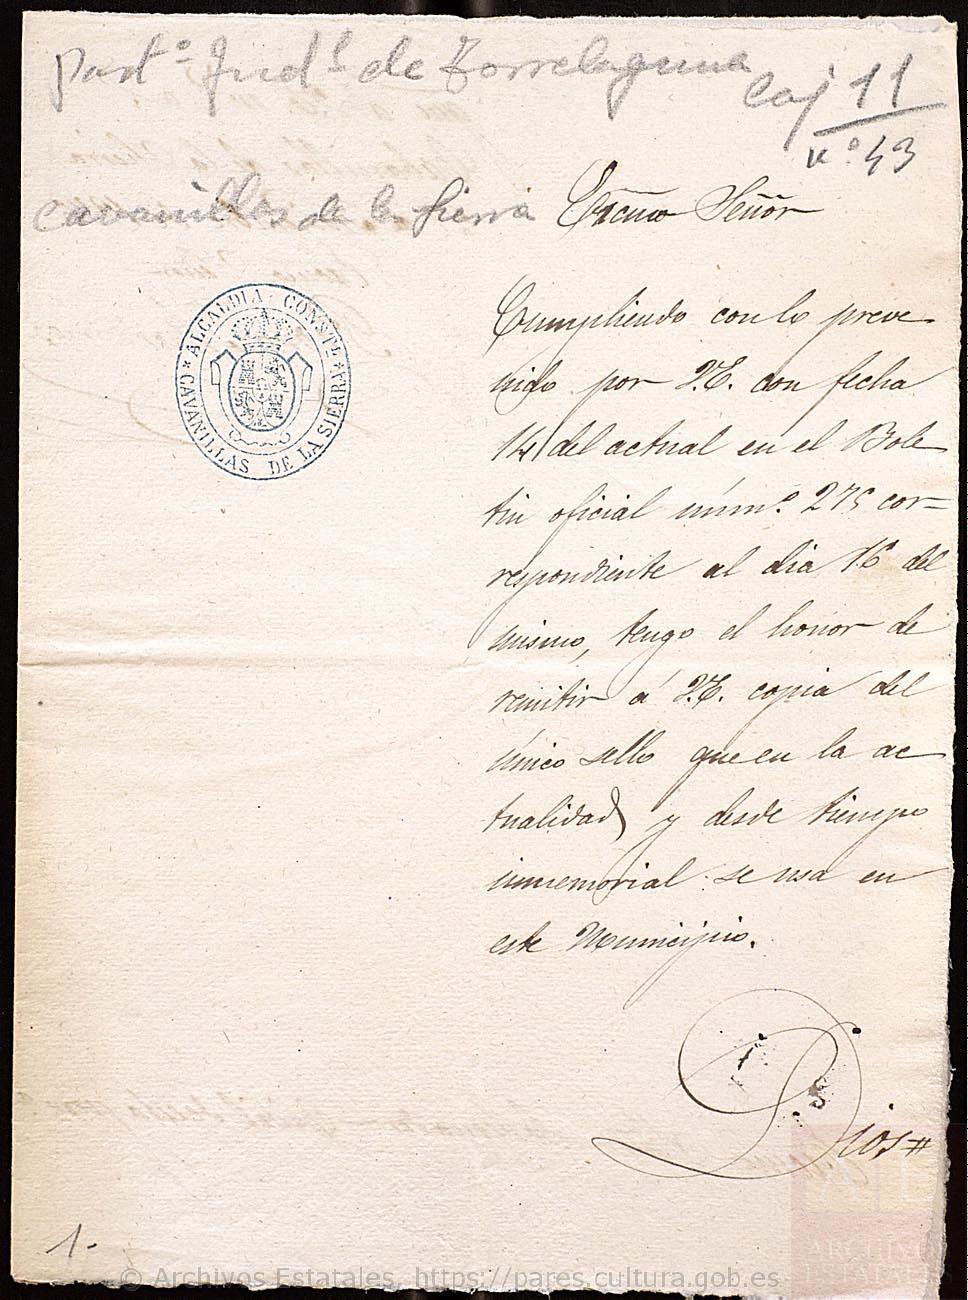 Part.º Jud.l de Torrelaguna
Caj 11
N.º 43
Cavanillas de la Sierra
Excmo Señor
ALCALDIA CONSTL.
CAVANILLAS DE LA SIERRA
Cumpliendo con lo preve
nido por V.E. con fecha
14 del actual en el Bole
tin oficial núm.º 275 cor-
respondiente al dia 16 del
mismo, tengo el honor de
remitir á V.E. copia del
único sello que en la ac
tualidad y desde tiempo
inmemorial se usa en
este Municipio.
Dios #
1.
ARCHIVOS
© Archivos Estatales, https://pares.cultura.gob.es